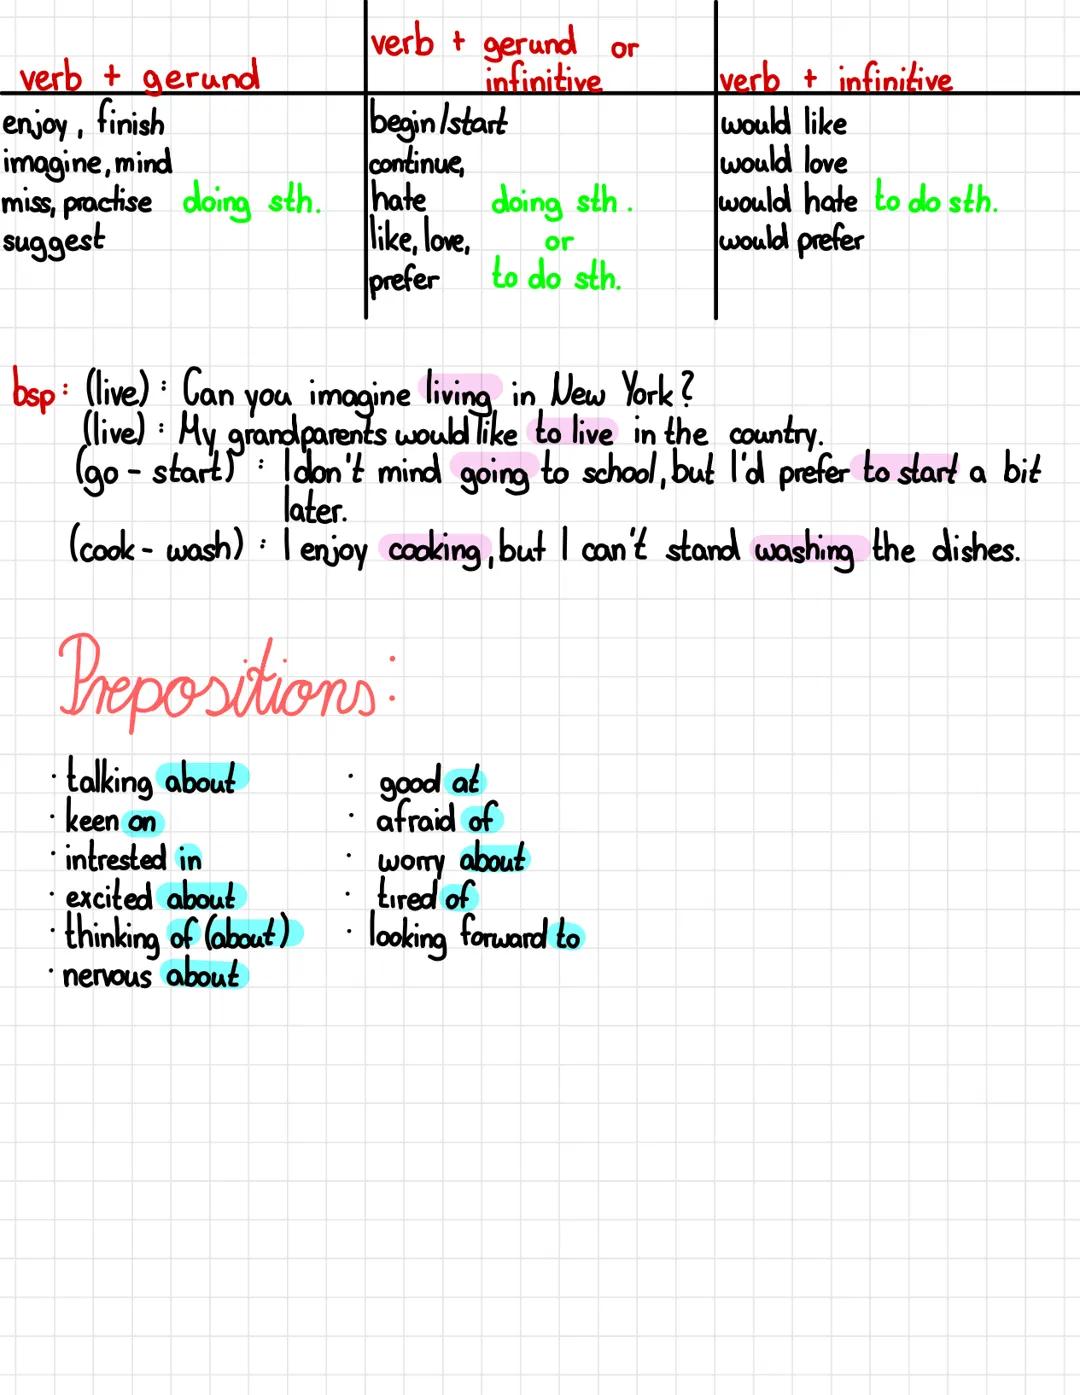 verb + gerund
enjoy, finish
imagine, mind
miss, practise doing sth.
suggest
verb + gerund or
infinitive
begin/start
continue,
hate doing sth.
like, love, or
prefer to do sth.
verb + infinitive
would like
would love
would hate to do sth.
would prefer
bsp: (live): Can you imagine living in New York?
(live): My grandparents would like to live in the country.
(go - start): I don't mind going to school, but I'd prefer to start a bit
later.
(cook - wash): I enjoy cooking, but I can't stand washing the dishes.
Prepositions:
· talking about
· keen on
· intrested in
· excited about
· thinking of (about)
· nervous about
· good at
· afraid of
· worry about
· tired of
· looking forward to